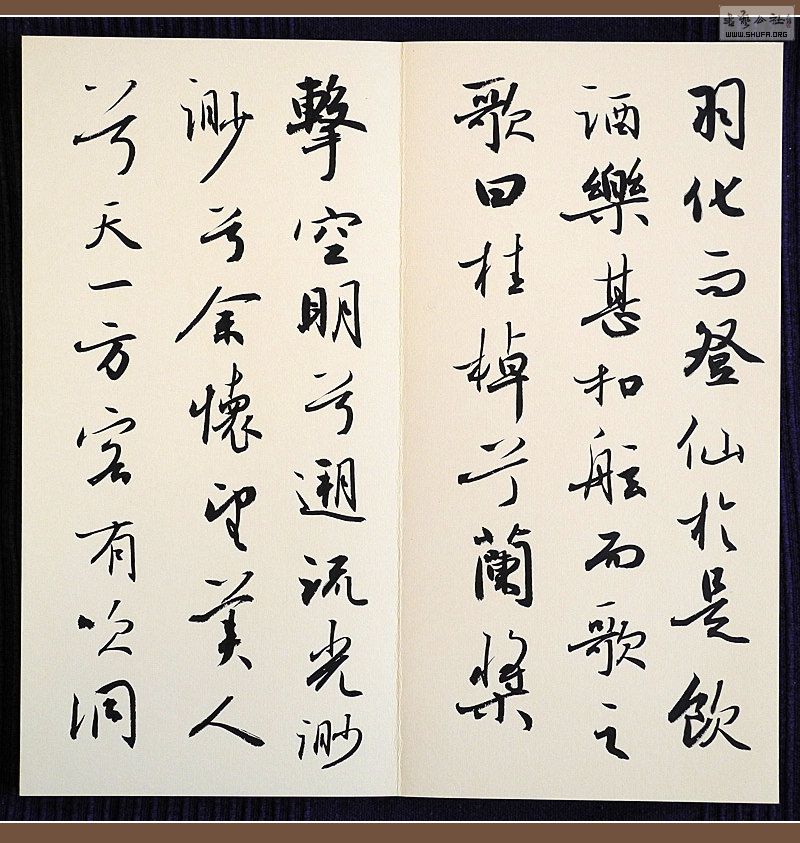 羽化而登仙於是飲
酒樂甚扣舷而歌之
歌曰桂棹兮蘭槳
擊空明兮遡流光渺
渺兮余懷望美人
兮天一方客有吹洞
書藝公社
WWW.SHUFA.ORG